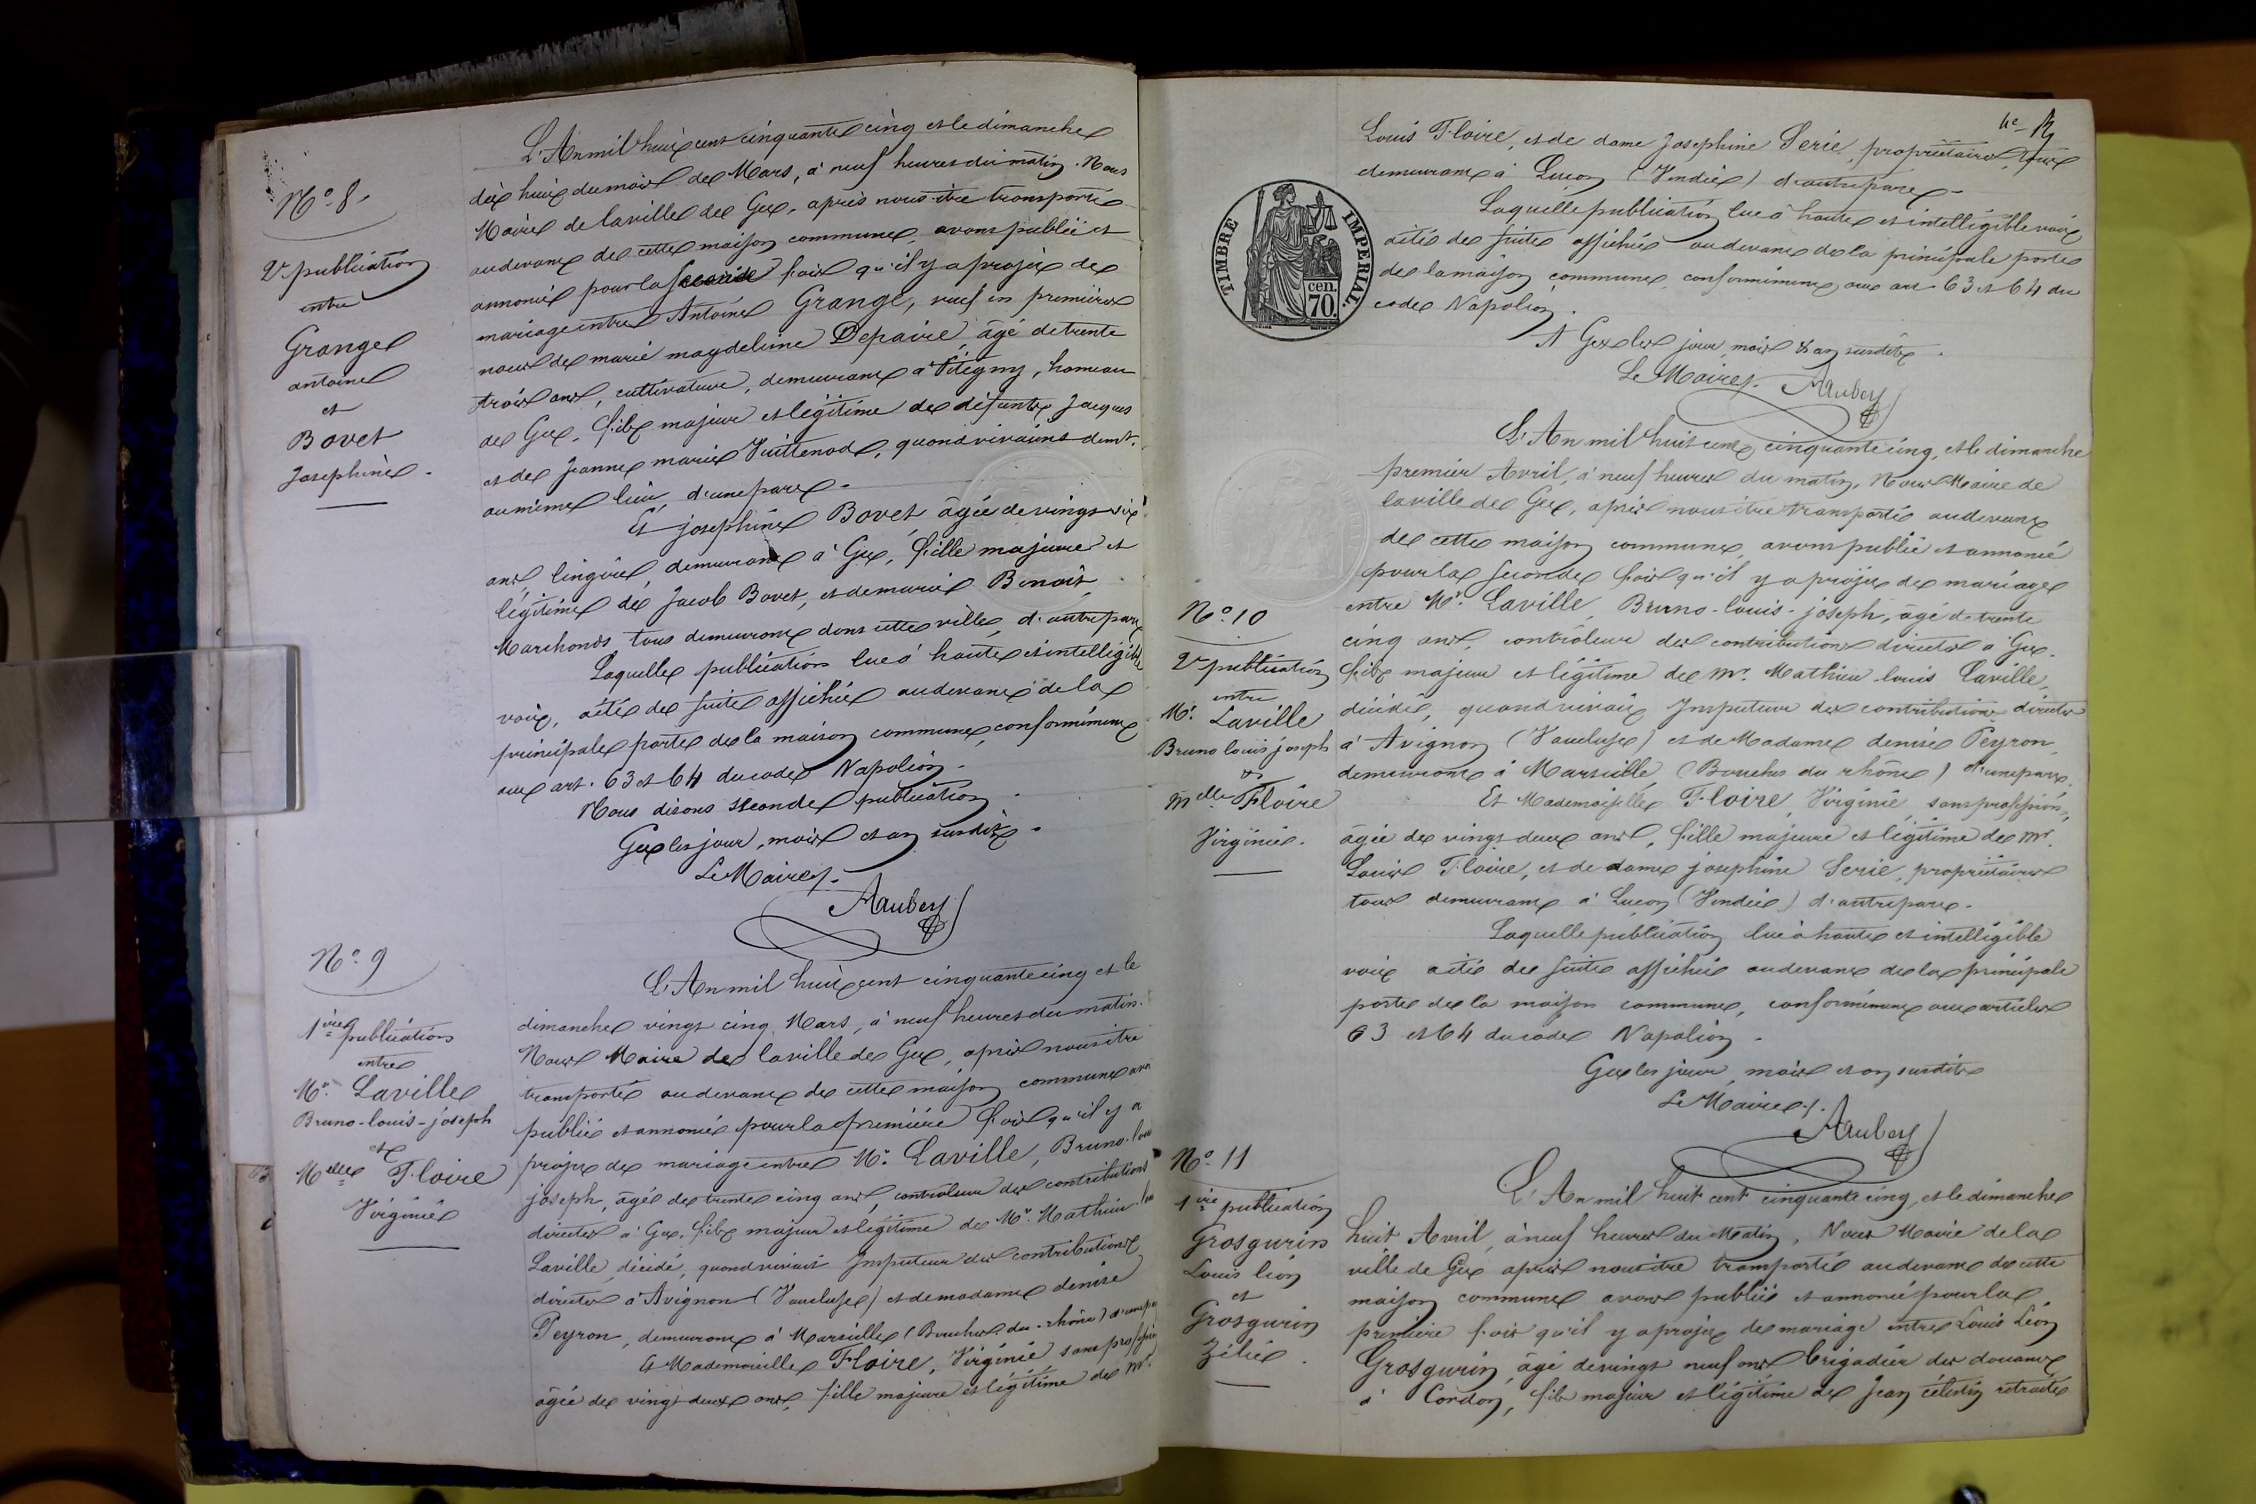 L'An mil huit cent cinquante cinq et le dimanche
dix huit du mois de Mars, à neuf heures du matin. Nous
Maire de la ville de Gex, après nous être transporté
au devant de cette maison commune, avons publié et
annoncé pour la seconde fois qu'il y a projet de
mariage entre Antoine Grange, veuf en premières
noces de marie magdeleine Depaire, âgé de trente
trois ans, cultivateur, demeurant à Pitegny, hameau
de Gex, fils majeur et légitime de défunts Jacques
et de Jeanne marie Vuittenod, quand vivaient demt.
au même lieu, d'une part.
Et josephine Bovet, âgée de vingt six
ans, lingère, demeurant à Gex, fille majeure et
légitime de Jacob Bovet, et de marie Benoit,
Marchands tous demeurant dans cette ville, d'autre part
Laquelle publication lue à haute et intelligible
voix, a été de suite affichée au devant de la
principale porte de la maison commune, conformément
aux art. 63 et 64 du code Napoléon.
Nous disons seconde publication.
Gex les jour, mois et an susdits.
Le Maire,
Aubery
N° 8.
2e publication
entre
Grange
antoine
et
Bovet
Josephine.
N° 9
1ière publication
entre
Mr. Laville
Bruno-louis-joseph
et
Melle Floire
Virginie
L'An mil huit cent cinquante cinq et le
dimanche vingt cinq Mars, à neuf heures du matin.
Nous Maire de la ville de Gex, après nous être
transporté au devant de cette maison commune avo
publié et annoncé pour la première fois qu'il y a
projet de mariage entre Mr. Laville, Bruno-loui
joseph, âgé de trente cinq ans, controleur des contributions
directes à Gex, fils majeur et légitime de Mr. Mathieu-lou
Laville, décédé, quand vivait Inspecteur des contributions
directes à Avignon (Vaucluse) et de madame denise
Peyron, demeurant à Marseille (Bouches-du-rhône) d'une pa
Et Mademoiselle Floire, Virginie sans profession
âgée de vingt deux ans, fille majeure et légitime de Mr.
4e
Louis Floire, et de dame Josephine Serié, propriétaires, tous
demeurant à Luçon (Vendée) d'autre part.
Laquelle publication lue à haute et intelligible voix
a été de suite affichée au devant de la principale porte
de la maison commune, conformément aux art. 63 et 64 du
code Napoléon.
A Gex les jour, mois & an susdits.
Le Maire,
Aubery
TIMBRE IMPERIAL.
cen.
70.
L'An mil huit cent cinquante cinq, et le dimanche
premier Avril, à neuf heures du matin, Nous Maire de
la ville de Gex, après nous être transporté au devant
de cette maison commune, avons publié et annoncé
pour la seconde fois qu'il y a projet de mariage
entre Mr. Laville, Bruno-louis-joseph, âgé de trente
cinq ans, contrôleur des contributions directes à Gex.
fils majeur et légitime de Mr. Mathieu louis Laville,
décédé, quand vivait Inspecteur des contributions directes
à Avignon (Vaucluse) et de Madame denise Peyron,
demeurant à Marseille (Bouches du rhône) d'une part.
Et Mademoiselle Floire, Virginie, sans profession,
âgée de vingt deux ans, fille majeure et légitime de Mr.
Louis Floire, et de dame josephine Serié, propriétaires
tous demeurant à Luçon (Vendée) d'autre part.
Laquelle publication lue à haute et intelligible
voix a été de suite affichée au devant de la principale
porte de la maison commune, conformément aux articles
63 et 64 du code Napoléon.
Gex les jour, mois et an susdits
Le Maire,
Aubery
N° 10
2e publication
entre
Mr. Laville
Bruno louis joseph
et
Melle Floire
Virginie.
N° 11
1ière publication
Grosgurin
Louis léon
et
Grosgurin
Zélie.
L'An mil huit cent cinquante cinq, et le dimanche
huit Avril, à neuf heures du Matin, Nous Maire de la
ville de Gex après nous être transporté au devant de cette
maison commune avons publié et annoncé pour la
première fois qu'il y a projet de mariage entre Louis Léon
Grosgurin, âgé de vingt neuf ans brigadier des douanes
à Cordon, fils majeur et légitime de Jean célestin retraité